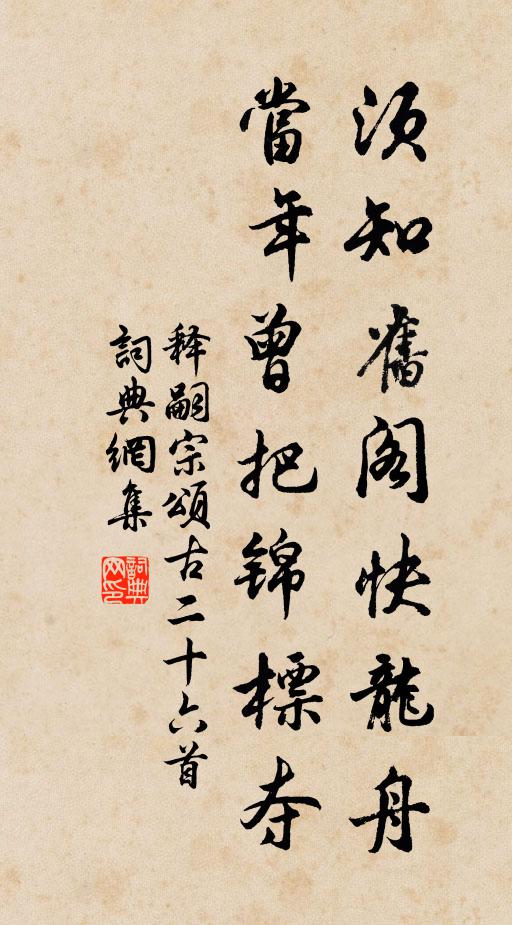 須知舊阁快龍舟
當年曾把錦標夺
释嗣宗頌古二十六首
詞典網集
詞典网印